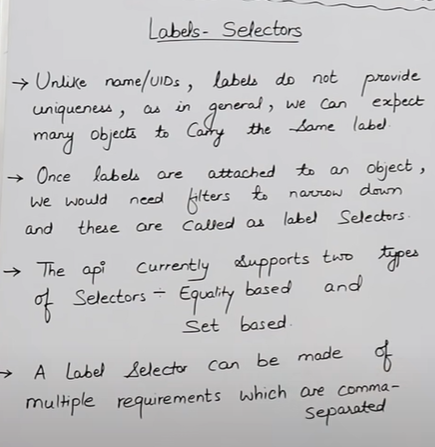 Labels- Selectors
→ Unlike name/UIDs, labels do not provide
uniqueness, as in general, we can expect
many objects to Carry the Same label.
→ Once labels are attached to an object,
We would need filters to narrow down
and these are called as label Selectors.
→ The api currently supports two types
of Selectors ÷ Equality based and
Set based.
→ A Label Selector can be made of
multiple requirements which are comma-
Separated